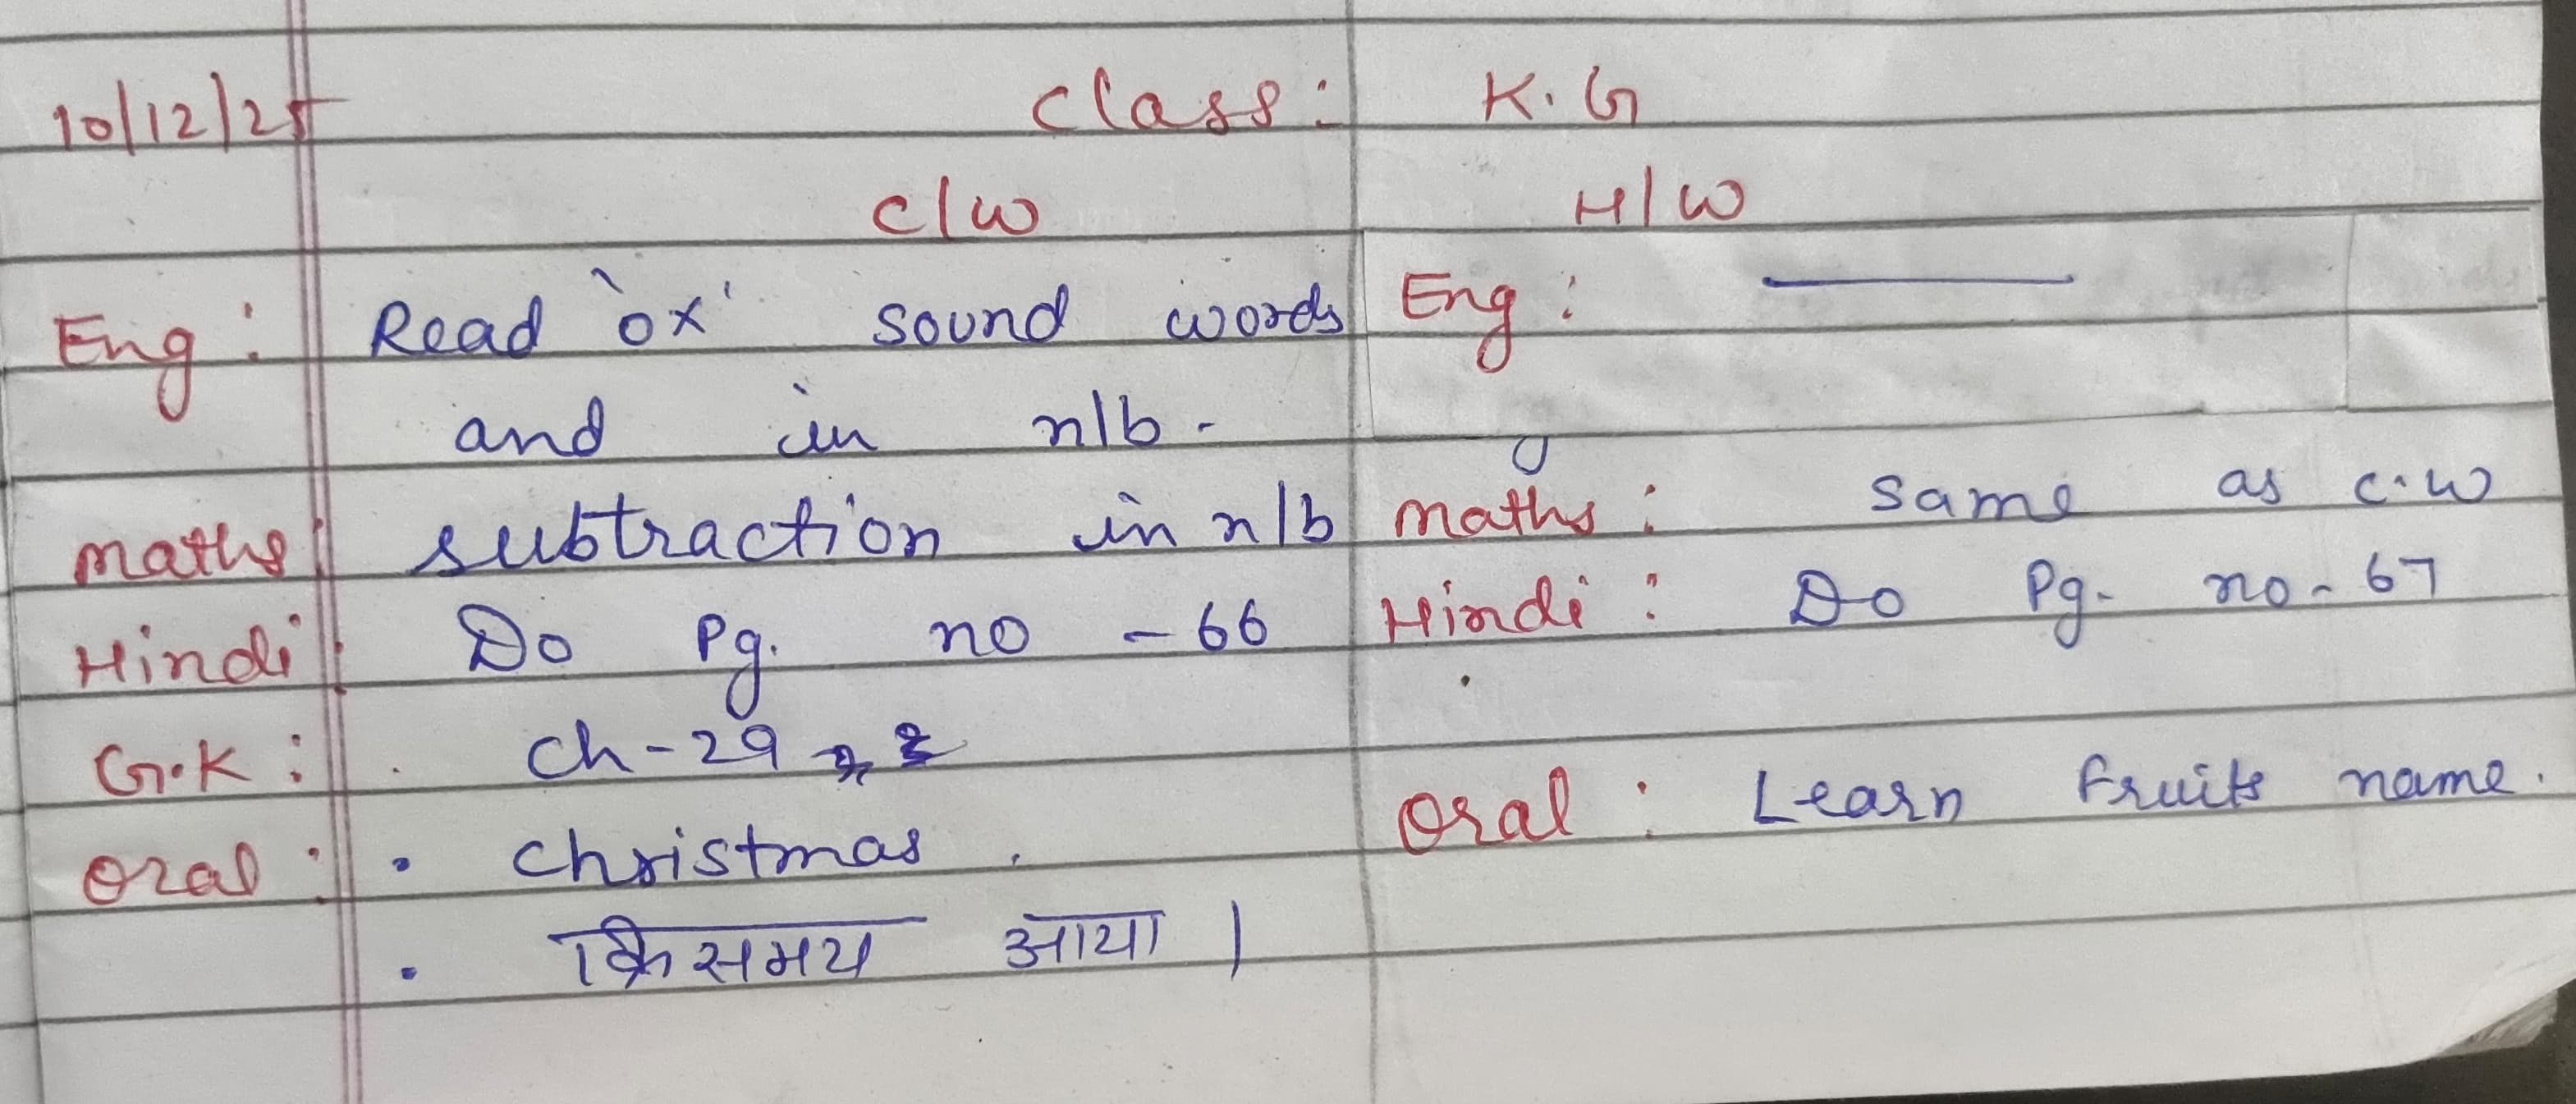 10/12/25 Class: K.G
C/W H/W
Eng: Read 'ox' sound words
and in n/b.
Maths: subtraction in n/b
Hindi: Do Pg. no - 66
G.K: Ch-29
Oral: • Christmas.
• क्रिसमय आया।
Eng: ———
Maths: Same as c.w
Hindi: Do Pg. no - 67
Oral: Learn fruits name.